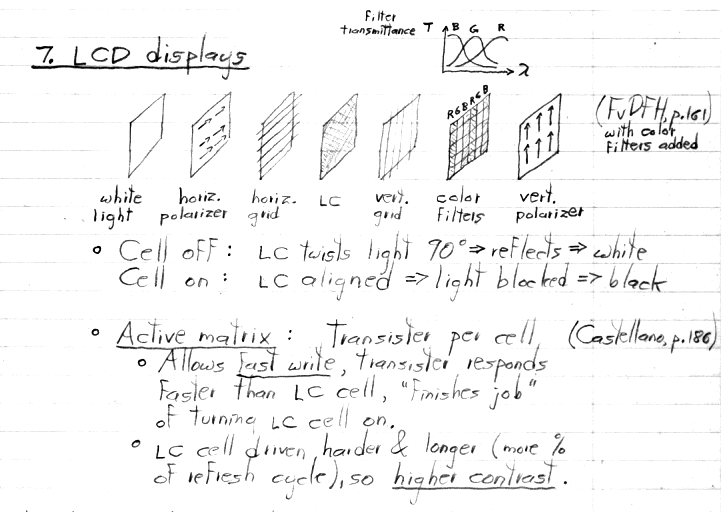 Filter
transmittance T B G R
λ
7. LCD displays
R G B R G B
(FvDFH, p.161)
with color
filters added
white light
horiz. polarizer
horiz. grid
LC
vert. grid
color filters
vert. polarizer
o Cell off: LC twists light 90° ⇒ reflects ⇒ white
Cell on: LC aligned ⇒ light blocked ⇒ black
o Active matrix: Transister per cell (Castellano, p.186)
o Allows fast write, transister responds
faster than LC cell, "finishes job"
of turning LC cell on.
o LC cell driven harder & longer (more %
of refresh cycle), so higher contrast.